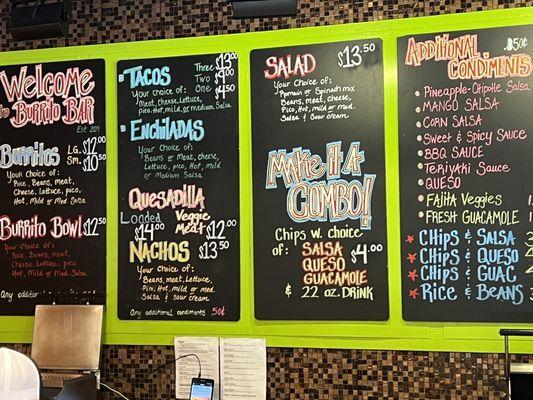 Welcome
to Burrito BAR
Est. 2011
Burritos LG. $12.00
SM. $10.50
Your choice of:
Rice, Beans, meat,
Cheese, Lettuce, pico
Hot, Mild or Med
Salsa
Burrito Bowl $12.50
Your Choice of:
Rice, Beans, meat,
Cheese, Lettuce, pico
Hot, Mild or Med Salsa
Any additional
TACOS Three $12.00
Two $9.00
One $4.50
Your choice of:
meat, cheese, Lettuce,
Pico, Hot, mild or medium Salsa
Enchiladas
Your Choice of:
Rice or Beans, meat, cheese,
Lettuce, pico, Hot, mild
or medium Salsa
Quesadilla
Loaded Veggie $12.00
$14.00 meat
NACHOS $13.50
Your Choice of:
Beans, meat, cheese, Lettuce,
Pico, Hot, mild or med.
Salsa & sour cream
Any additional condiments .50¢
SALAD $13.50
Your choice of:
Romain or Spinach mix
Beans, meat, cheese,
Pico, Hot, mild or med.
Salsa & Sour cream
Make it A
COMBO!
Chips w. choice
of: SALSA
QUESO $4.00
GUACAMOLE
& 22 oz. DRINK
Additional .50¢
CONDIMENTS
Pineapple-Chipotle Salsa
MANGO SALSA
CORN SALSA
Sweet & Spicy Sauce
BBQ SAUCE
Teriyaki Sauce
QUESO
FAJITA Veggies
FRESH GUACAMOLE
CHIPS & SALSA
CHIPS & QUESO
CHIPS & GUAC
RICE & BEANS